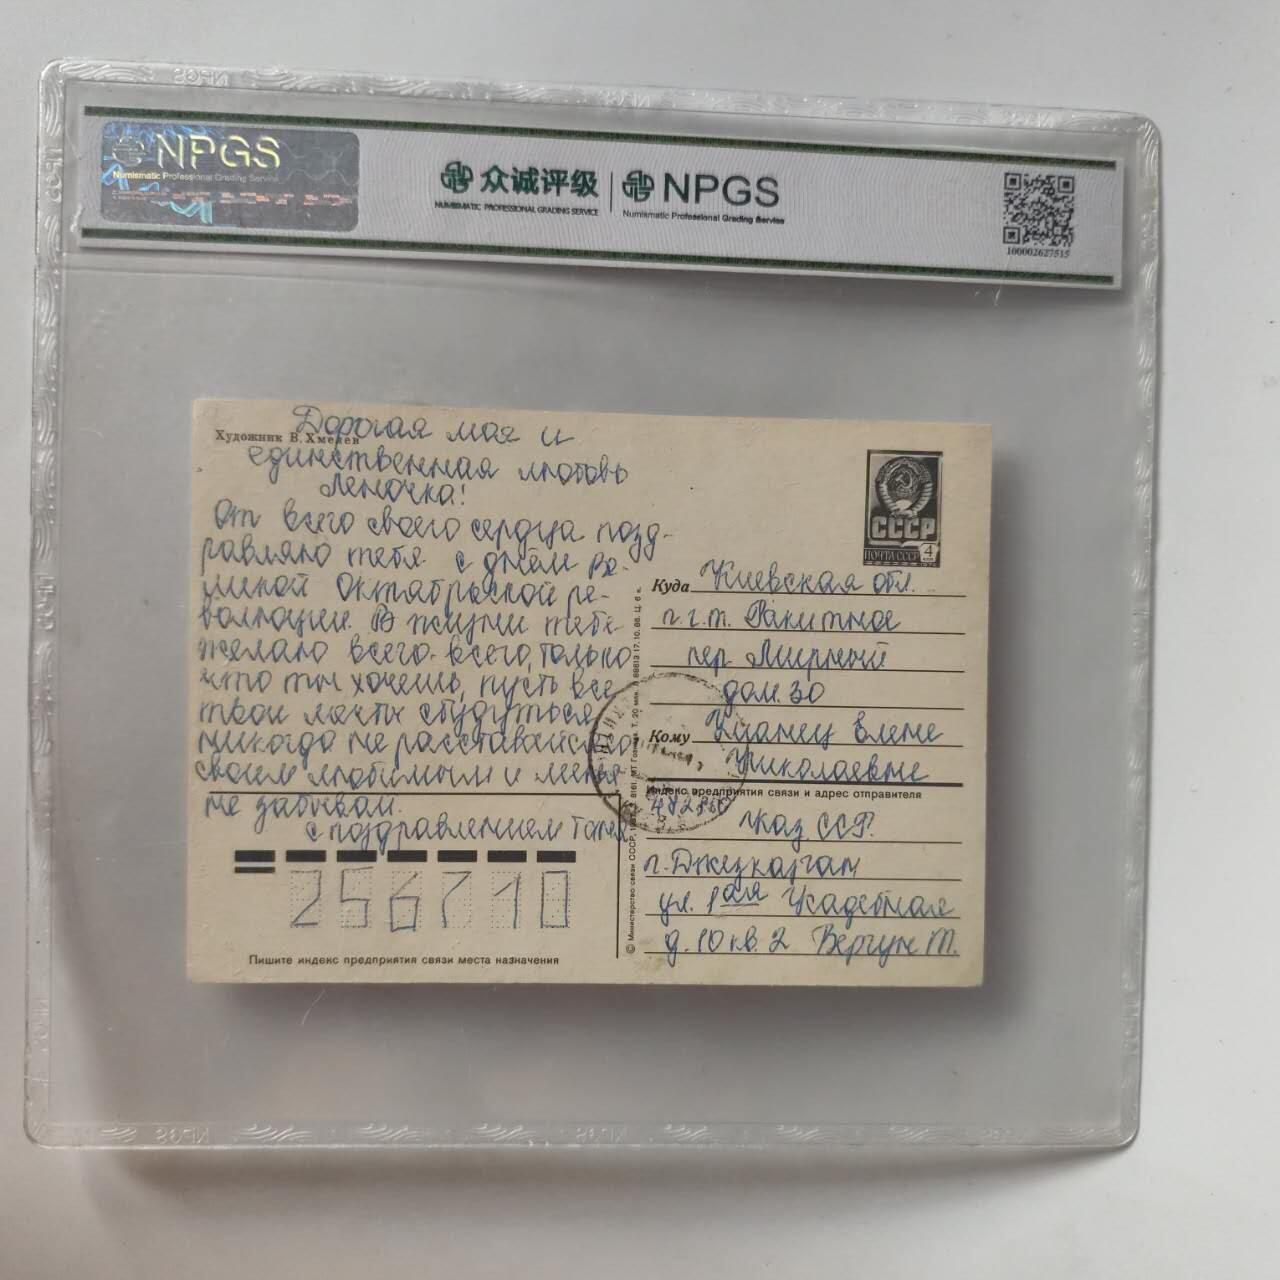 NPGS
Numismatic Professional Grading Service
众诚评级
NUMISMATIC PROFESSIONAL GRADING SERVICE
NPGS
Numismatic Professional Grading Service
100002627515
Художник В. Хмелев
Дорогая моя и
единственная любовь
Леночка!
От всего своего сердца позд-
равляю тебя с днём Ве-
ликой Октябрьской ре-
волюции. В жизни тебе
желаю всего-всего, только
что ты хочешь, пусть все
твои мечты сбудуться
никогда не расставайся со
своим любимым и меня
не забывай.
с поздравлением Таня
СССР
ПОЧТА СССР 4
Куда Киевская обл.
п.г.т. Ракитное
пер. Мирный
дом. 30
Кому Елене
Николаевне
Индекс предприятия связи и адрес отправителя
Каз ССР.
г. Джезказган
ул. 1ая Усадебная
д. 10 кв. 2 Вергун Т.
256710
Пишите индекс предприятия связи места назначения
© Министерство связи СССР,